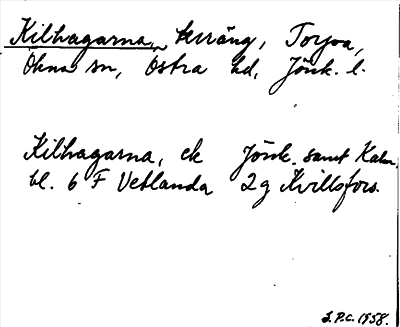 Kilhagarna, terräng, Torpa,
Ökna sn, Östra hd, Jönk. l.
Kilhagarna, ek Jönk. samt Kalm.
bl. 6 F Vetlanda 2g Kvillsfors.
S.P.C. 1958.